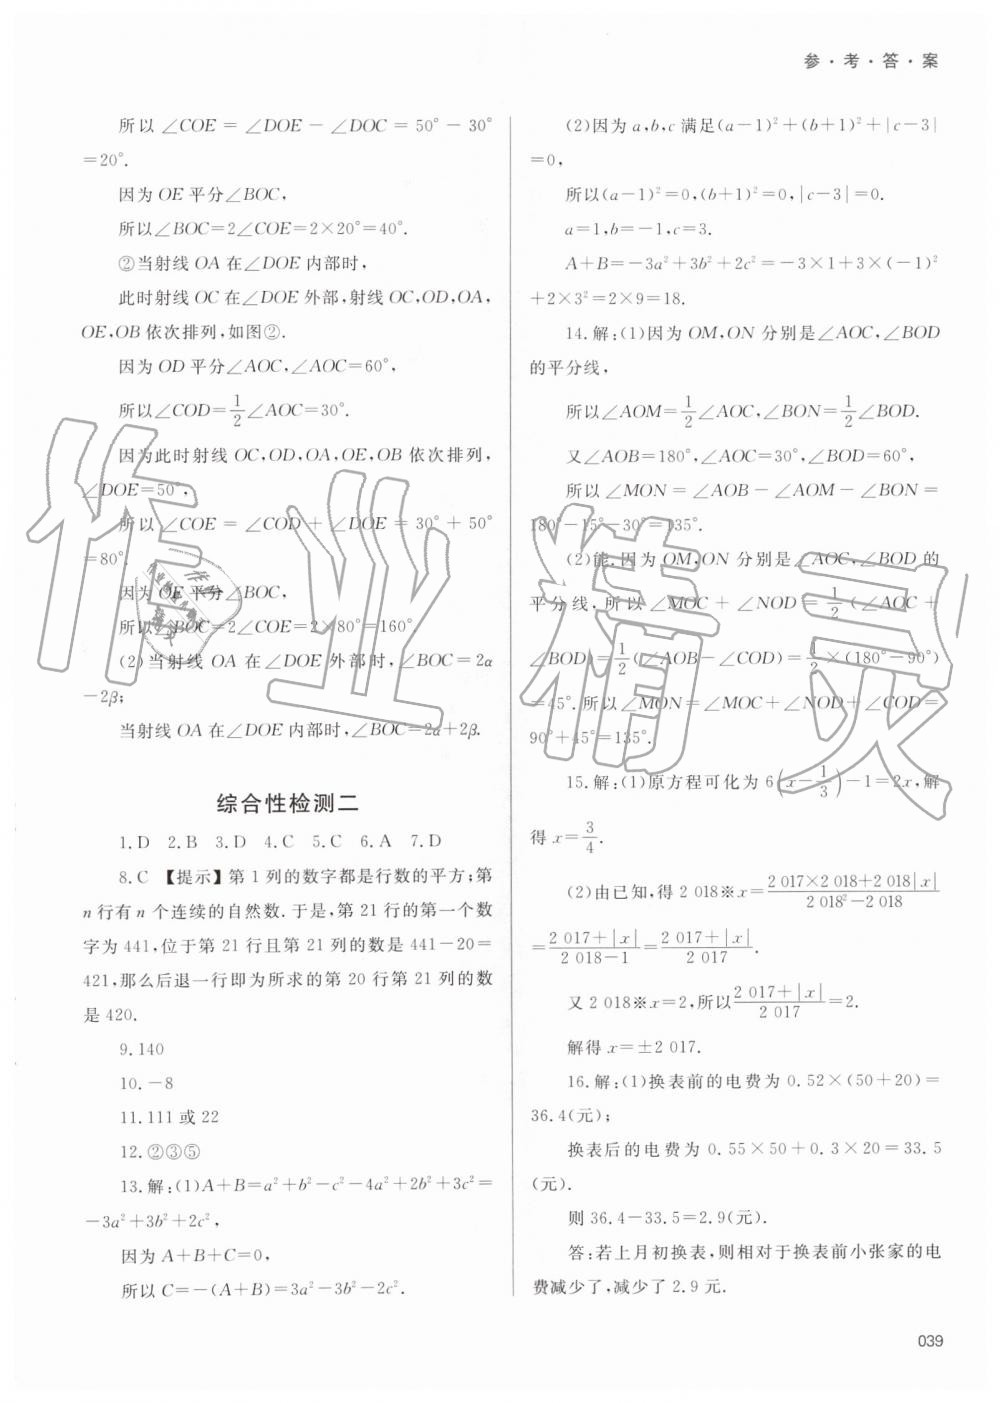 参·考·答·案
所以∠COE=∠DOE-∠DOC=50°-30°
=20°.
因为OE平分∠BOC,
所以∠BOC=2∠COE=2×20°=40°.
②当射线OA在∠DOE内部时,
此时射线OC在∠DOE外部,射线OC,OD,OA,
OE,OB依次排列,如图②.
因为OD平分∠AOC,∠AOC=60°,
所以∠COD=1/2∠AOC=30°.
因为此时射线OC,OD,OA,OE,OB依次排列,
∠DOE=50°,
所以∠COE=∠COD+∠DOE=30°+50°
=80°.
因为OE平分∠BOC,
所以∠BOC=2∠COE=2×80°=160°.
(2)当射线OA在∠DOE外部时,∠BOC=2α
-2β;
当射线OA在∠DOE内部时,∠BOC=2α+2β.
综合性检测二
1.D 2.B 3.D 4.C 5.C 6.A 7.D
8.C 【提示】第1列的数字都是行数的平方;第
n行有n个连续的自然数.于是,第21行的第一个数
字为441,位于第21行且第21列的数是441-20=
421,那么后退一行即为所求的第20行第21列的数
是420.
9.140
10.-8
11.111或22
12.②③⑤
13.解:(1)A+B=a²+b²-c²-4a²+2b²+3c²=
-3a²+3b²+2c²,
因为A+B+C=0,
所以C=-(A+B)=3a²-3b²-2c².
(2)因为a,b,c满足(a-1)²+(b+1)²+|c-3|
=0,
所以(a-1)²=0,(b+1)²=0,|c-3|=0.
a=1,b=-1,c=3.
A+B=-3a²+3b²+2c²=-3×1+3×(-1)²
+2×3²=2×9=18.
14.解:(1)因为OM,ON分别是∠AOC,∠BOD
的平分线,
所以∠AOM=1/2∠AOC,∠BON=1/2∠BOD.
又∠AOB=180°,∠AOC=30°,∠BOD=60°,
所以∠MON=∠AOB-∠AOM-∠BON=
180°-15°-30°=135°.
(2)能.因为OM,ON分别是∠AOC,∠BOD的
平分线,所以∠MOC+∠NOD=1/2(∠AOC+
∠BOD)=1/2(∠AOB-∠COD)=1/2×(180°-90°)
=45°.所以∠MON=∠MOC+∠NOD+∠COD=
90°+45°=135°.
15.解:(1)原方程可化为6(x-1/3)-1=2x,解
得x=3/4.
(2)由已知,得2 018※x=(2 017×2 018+2 018|x|)/(2 018²-2 018)
=(2 017+|x|)/(2 018-1)=(2 017+|x|)/2 017.
又2 018※x=2,所以(2 017+|x|)/2 017=2.
解得x=±2 017.
16.解:(1)换表前的电费为0.52×(50+20)=
36.4(元);
换表后的电费为0.55×50+0.3×20=33.5
(元).
则36.4-33.5=2.9(元).
答:若上月初换表,则相对于换表前小张家的电
费减少了,减少了2.9元.
039
作业精灵